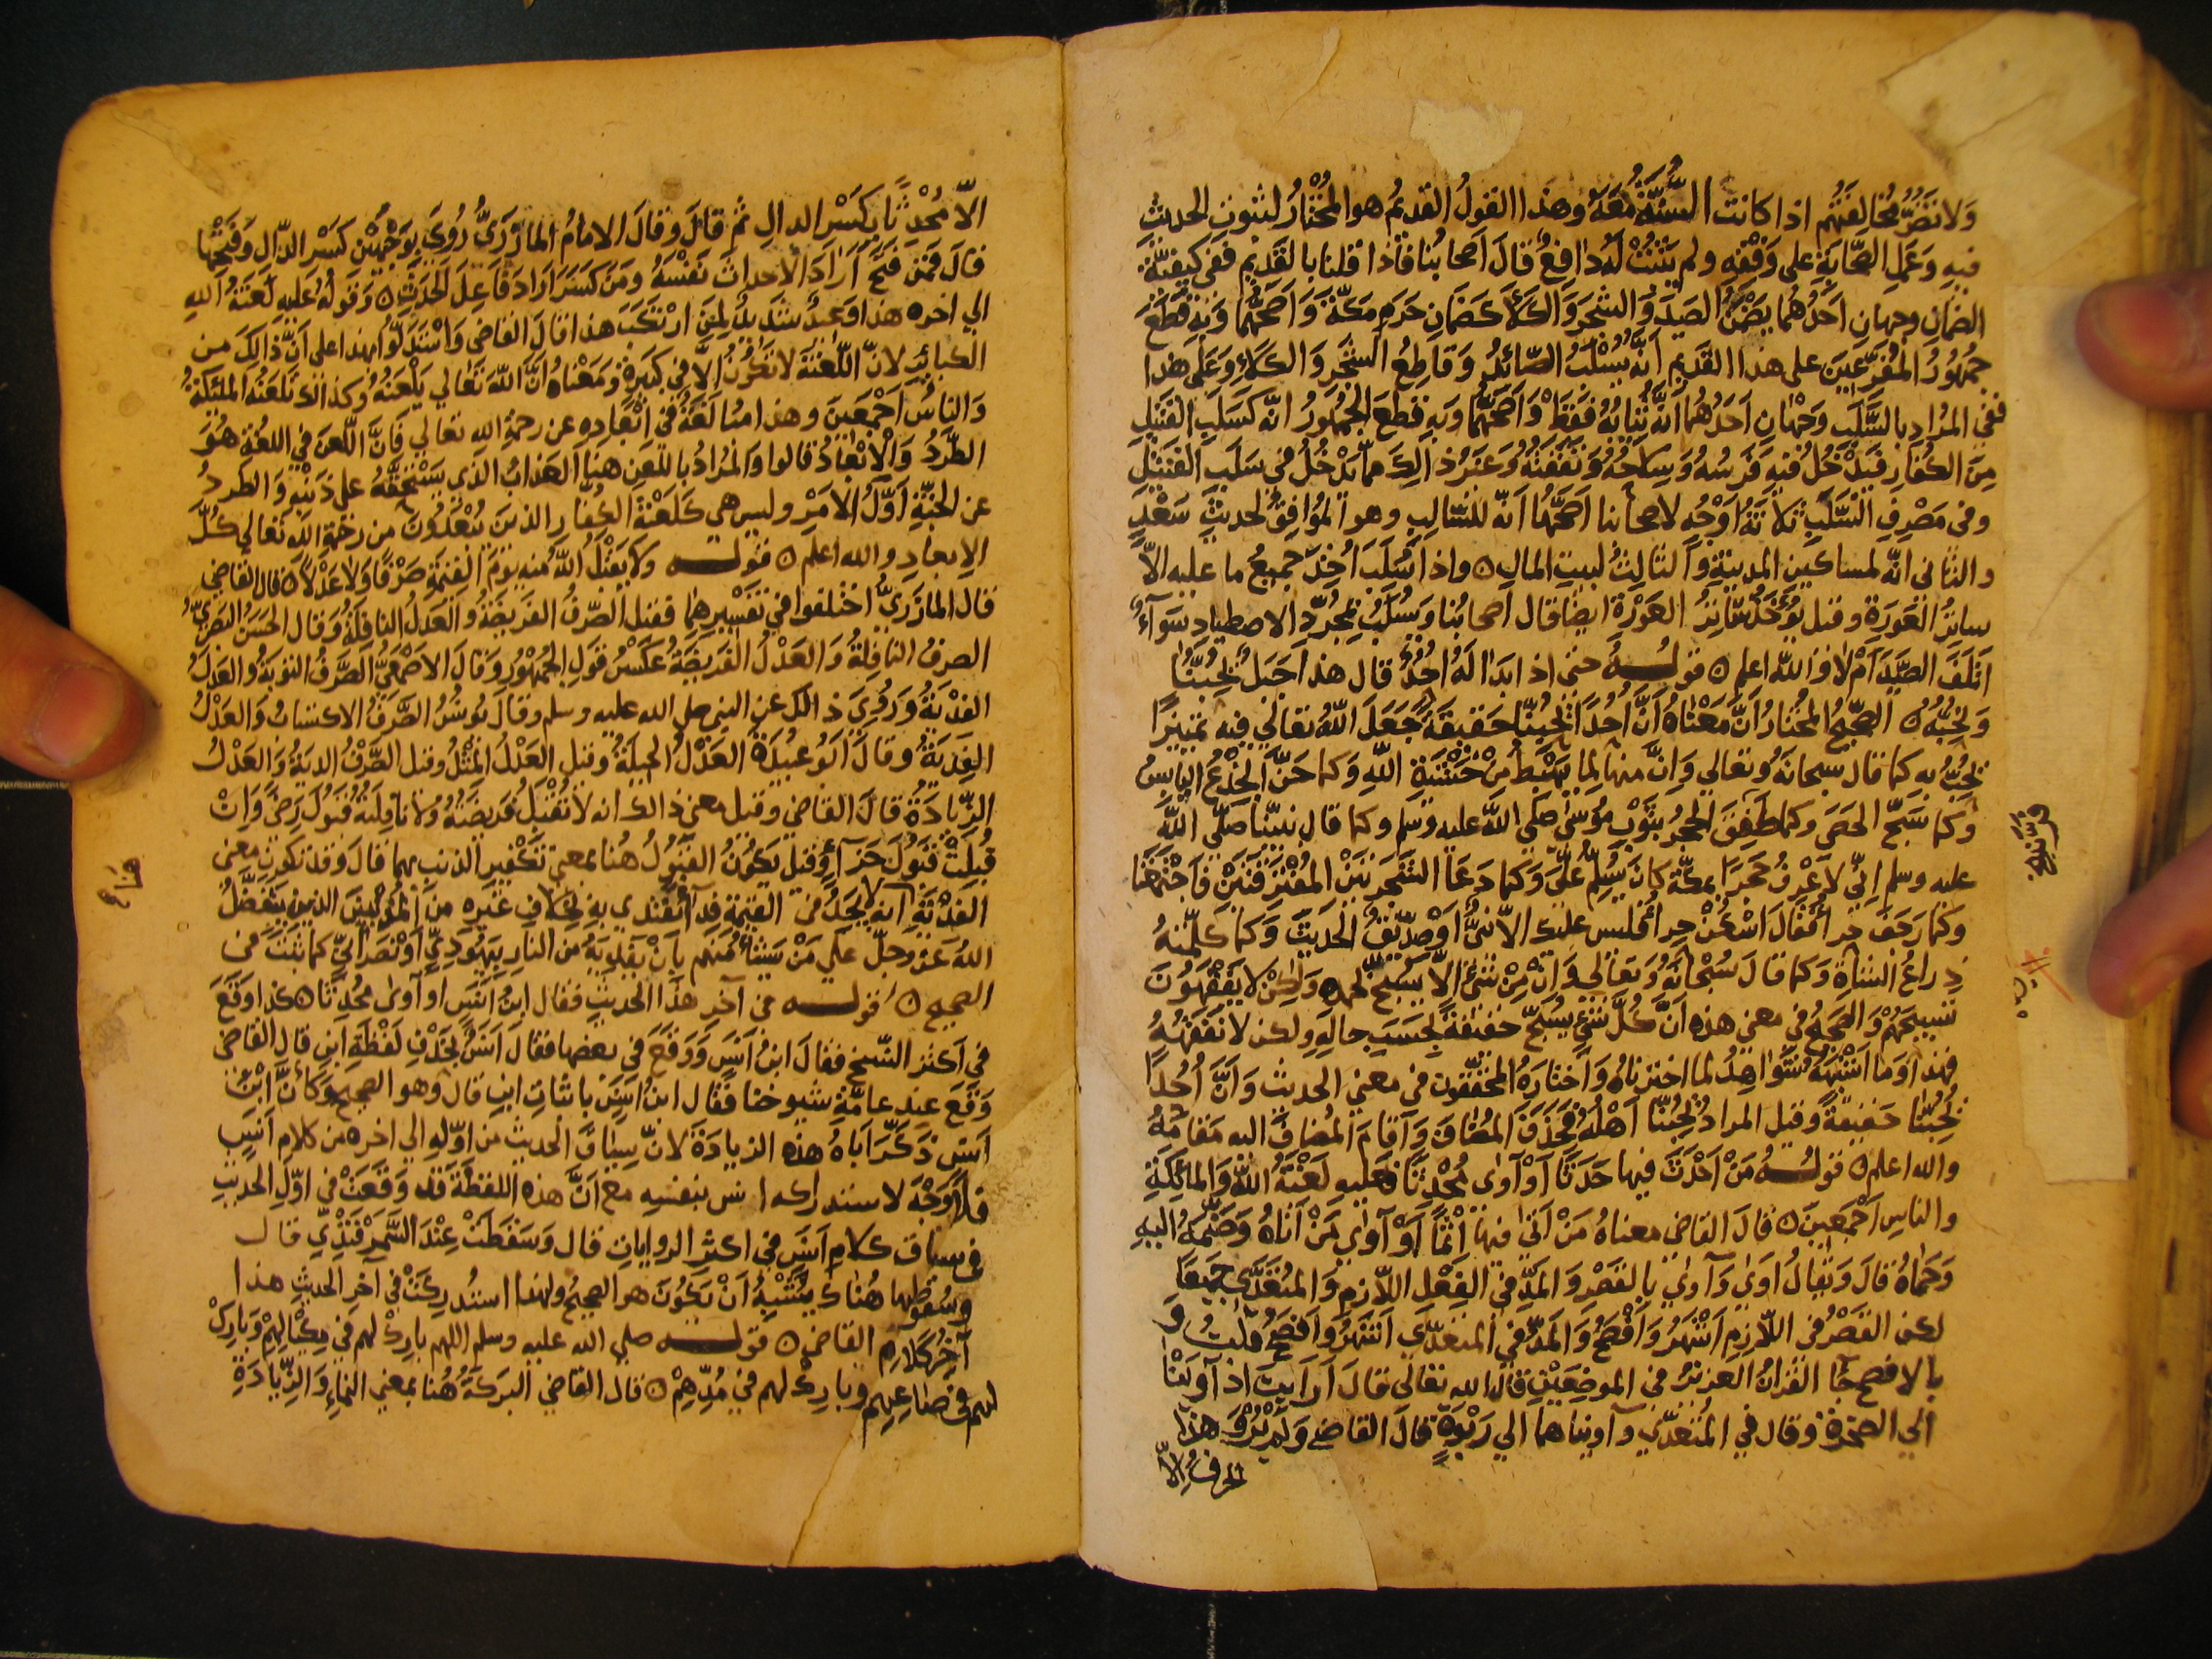 ولا تضر مخالفتهم اذا كانت السُّنَّةُ معه وهذا القولُ القديمُ هو المختارُ لثبوت الحديث
فيه وعمل الصحابة على وفقه ولم يثبت له دافع قال اصحابنا فاذا قلنا بالقديم ففي كيفيّة
الضمان وجهان احدهما يضمن الصيد والشجر والكلأ كضمان حرم مكّة واصحّهما وبه قطع
جمهور المفرّعين على هذا القديم انّه يُسْلَبُ الصائد وقاطع الشجر والكلاءِ وعلى هذا
ففي المراد بالسَّلَبِ وجهان احدهما انّه ثيابه فقط واصحّهما وبه قطع الجمهور انّه كسلب القتيل
من الكفار فيدخل فيه فرسه وسلاحه ونفقته وغير ذالك ممّا يدخل في سلب القتيل
وفي مصرف السَّلَبِ ثلاثة اوجه لاصحابنا اصحّها انّه للسّالب وهو الموافق لحديث سَعْدٍ
والثاني انّه لمساكين المدينة والثالث لبيت المال ۝ واذا سُلب اُخِذ جميع ما عليه الّا
ساتر العورة وقيل يؤخذ ساتر العورة ايضا قال اصحابنا ويُسلب بمجرّد الاصطياد سواءٌ
اتلف الصيد ام لا والله اعلم ۝ قولـــه حتى اذا بدا له اُحُدٌ قال هذا جَبَلٌ يُحِبُّنا
ونُحِبُّه ۝ الصحيح المختار انّ معناه انّ اُحُداً يُحِبّنا حقيقة جعل الله تعالى فيه تمييزًا
يُحِبُّ به كما قال سبحانه وتعالي وانّ منها لما يهبط من خشية الله وكما حَنَّ الجذع اليابس
وكما سَبّح الحصى وكما طفق الحجر بثوب موسى صلى الله عليه وسلم وكما قال نبيّنا صلّى الله
عليه وسلم اِنّي لاعرف حَجَرًا بمكّة كان يُسلّم علَيّ وكما دعا الشجرتين المفترقتين فاجتمعتا
وكما رجف حِرآءُ فقال اسكن حِراءُ فليس عليك الّا نبيٌّ او صدّيقٌ الحديث وكما كلّمه
ذراعُ الشاةِ وكما قال سبحانه وتعالي وَاِنْ مِنْ شَيْءٍ الّا يُسَبّح بحمده ولكن لا يفقهون
تسبيحهم والصحيح في معنى هذه انّ كلّ شيءٍ يُسَبّح حقيقةً بحسب حاله ولكن لا نفقهه
فهذا وما اشبهه شواهد لما اخترناه واختاره المحقّقون في معنى الحديث وانّ اُحُدًا
يُحِبُّنا حقيقةً وقيل المراد يُحِبّنا اهله فحذف المضاف واقام المضاف اليه مقامه
والله اعلم ۝ قولـــه من احدث فيها حَدَثًا او آوى مُحْدِثًا فعليه لعنة الله والملائكة
والناس اجمعين ۝ قال القاضي معناه من اتى فيها اثمًا او آوى من اتاه وضمّه اليه
وحماه قال ويقال اَوى وآوي بالقصر والمدّ في الفعل اللّازم والمتعدّي جميعًا
لكن القصر في اللّازم اشهر وافصح والمدّ في المتعدّي اشهر وافصح قلت و
بالافصح جا القرآن العزيز في الموضعين قال الله تعالى قال ارايت اذ آوينا
الي الصخرة وقال في المتعدّي وآويناهما الي ربوة قال القاضي ولم يُرْوَ هذا
الحرف اِلّا
الّا مُحْدِثًا بكسر الدال ثم قال وقال الامام المازريّ روي بوجهين كسر الدّال وفتحها
قال فمن فتح اراد الاحداث نفسه ومن كسر اراد فاعل الحدث ۝ وقوله عليه لعنة الله
الي اخره هذا وعيد شديد لمن ارتكب هذا قال القاضي واستدلّوا بهذا على انّ ذالك من
الكبائر لانّ اللّعنة لا تكون الّا في كبيرة ومعناه انّ الله تعالي يلعنه وكذالك تلعنه الملئكة
والناس اجمعين وهذا مبالغة في ابعاده عن رحمة الله تعالي فانّ اللّعن في اللغة هو
الطّرد والابعاد قالوا والمراد باللّعن هنا العذاب الذي يستحقّه على ذنبه والطرد
عن الجنّة اوّل الامر وليس هي كلعنة الكفّار الذين يُبْعَدُون من رحمة الله تعالي كلّ
الابعاد والله اعلم ۝ قولـــه ولا يقبل الله منه يوم القيمة صرفًا ولا عدلًا ۝ قال القاضي
قال المازريّ اختلفوا في تفسيرهما فقيل الصّرف الفريضة والعدل النافلة وقال الحسن البصريّ
الصرف النافلة والعدل الفريضة عكس قول الجمهور وقال الاصمعيّ الصّرف التوبة والعدل
الفدية وروي ذالك عن النبي صلى الله عليه وسلم وقال يونس الصّرف الاكتساب والعدل
الفدية وقال ابو عبيدة العدل الحيلة وقيل العدل المثل وقيل الصّرف الدية والعدل
الزّيادة قال القاضي وقيل معنى ذالك انه لا تقبل فريضته ولا نافلته قبول رضى وان
قُبِلت قبول جزآءٍ وقيل يكون القبول هنا بمعنى تكفير الذنب بهما قال وقد تكون معنى
الفدية انه لا يجد في القيمة فدآءً يفتدي به بخلاف غيره من المذنبين الذين يتفضّل
الله عزّ وجلّ على من يشاء منهم بان يفديه من النار بيهوديّ او نصرانيّ كما ثبت في
الصحيح ۝ قولـــه في آخر هذا الحديث فقال ابن انس او آوى مُحْدِثًا ۝ كذا وقع
في اكثر النّسخ فقال ابن انس ووقع في بعضها فقال انس بحذف لفظة ابن قال القاضي
وقع عند عامّة شيوخنا فقال ابن انس باثبات ابن قال وهو الصحيح وكانّ ابن
انس ذكّر اباه هذه الزيادة لانّ سياق الحديث من اوّله الي اخره من كلام انس
فلا وجه لاستدراكه انس بنفسه مع انّ هذه اللفظة قد وقعت في اوّل الحديث
في سياق كلام انس في اكثر الروايات قال وسقطت عند السّمرقنديّ قال
وسقوطها هناك يشبه ان يكون هو الصحيح ولهذا استدركت في آخر الحديث هذا
آخر كلام القاضي ۝ قولـــه صلى الله عليه وسلم اللهم بارك لهم في مكيالهم وبارك
لهم في صاعهم وبارك لهم في مُدّهم ۝ قال القاضي البركة هُنا بمعنى النماء والزّيادة